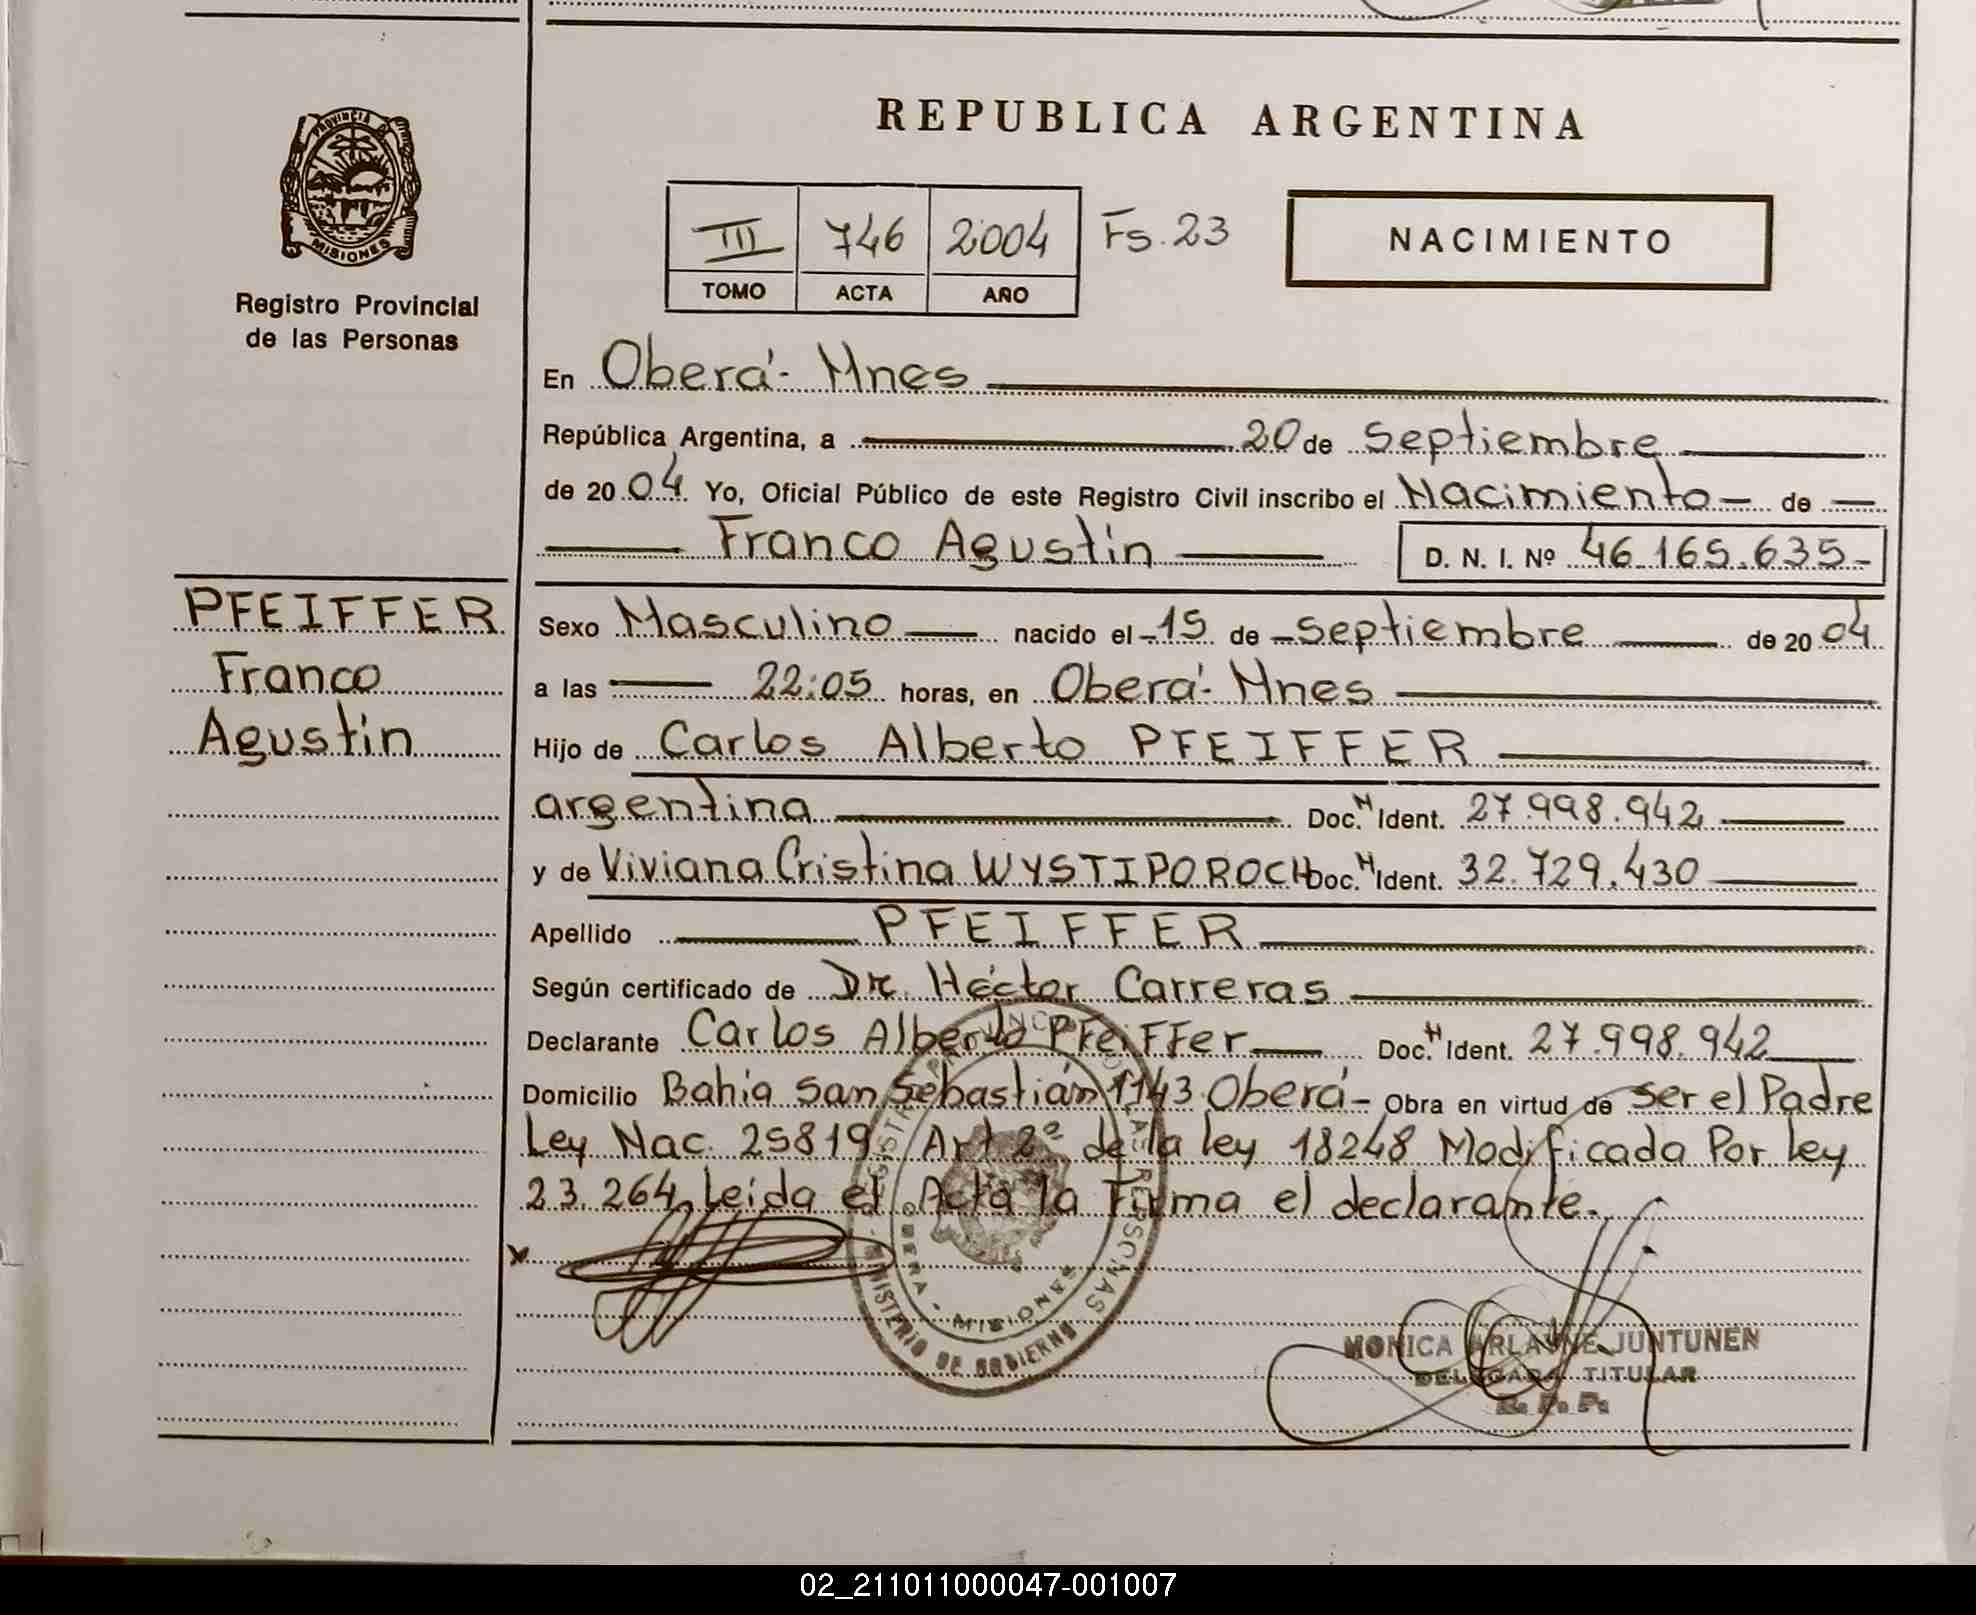 REPUBLICA ARGENTINA
PROVINCIA DE
MISIONES
Registro Provincial
de las Personas
III 746 2004 Fs. 23
TOMO ACTA AÑO
NACIMIENTO
En Oberá - Mnes
República Argentina, a 20 de Septiembre
de 2004 Yo, Oficial Público de este Registro Civil inscribo el Nacimiento - de
Franco Agustín D. N. I. Nº 46.165.635-
PFEIFFER
Franco
Agustín
Sexo Masculino nacido el 15 de Septiembre de 2004
a las 22:05 horas, en Oberá - Mnes
Hijo de Carlos Alberto PFEIFFER
argentina Doc. N Ident. 27.998.942
y de Viviana Cristina WYSTIPOROCH Doc. N Ident. 32.729.430
Apellido PFEIFFER
Según certificado de Dr. Héctor Carreras
Declarante Carlos Alberto PFeiFFer Doc. N Ident. 27.998.942
Domicilio Bahia San Sebastián 1143 Oberá - Obra en virtud de ser el Padre
Ley Nac. 25819 / Art 2º de la ley 18248 Modificada Por ley
23.264, Leida el Acta la Firma el declarante.
x
OBERA - MISIONES
MINISTERIO DE GOBIERNO
MONICA ARLAYNE JUNTUNEN
DELEGADA TITULAR
R. P. P.
02_211011000047-001007